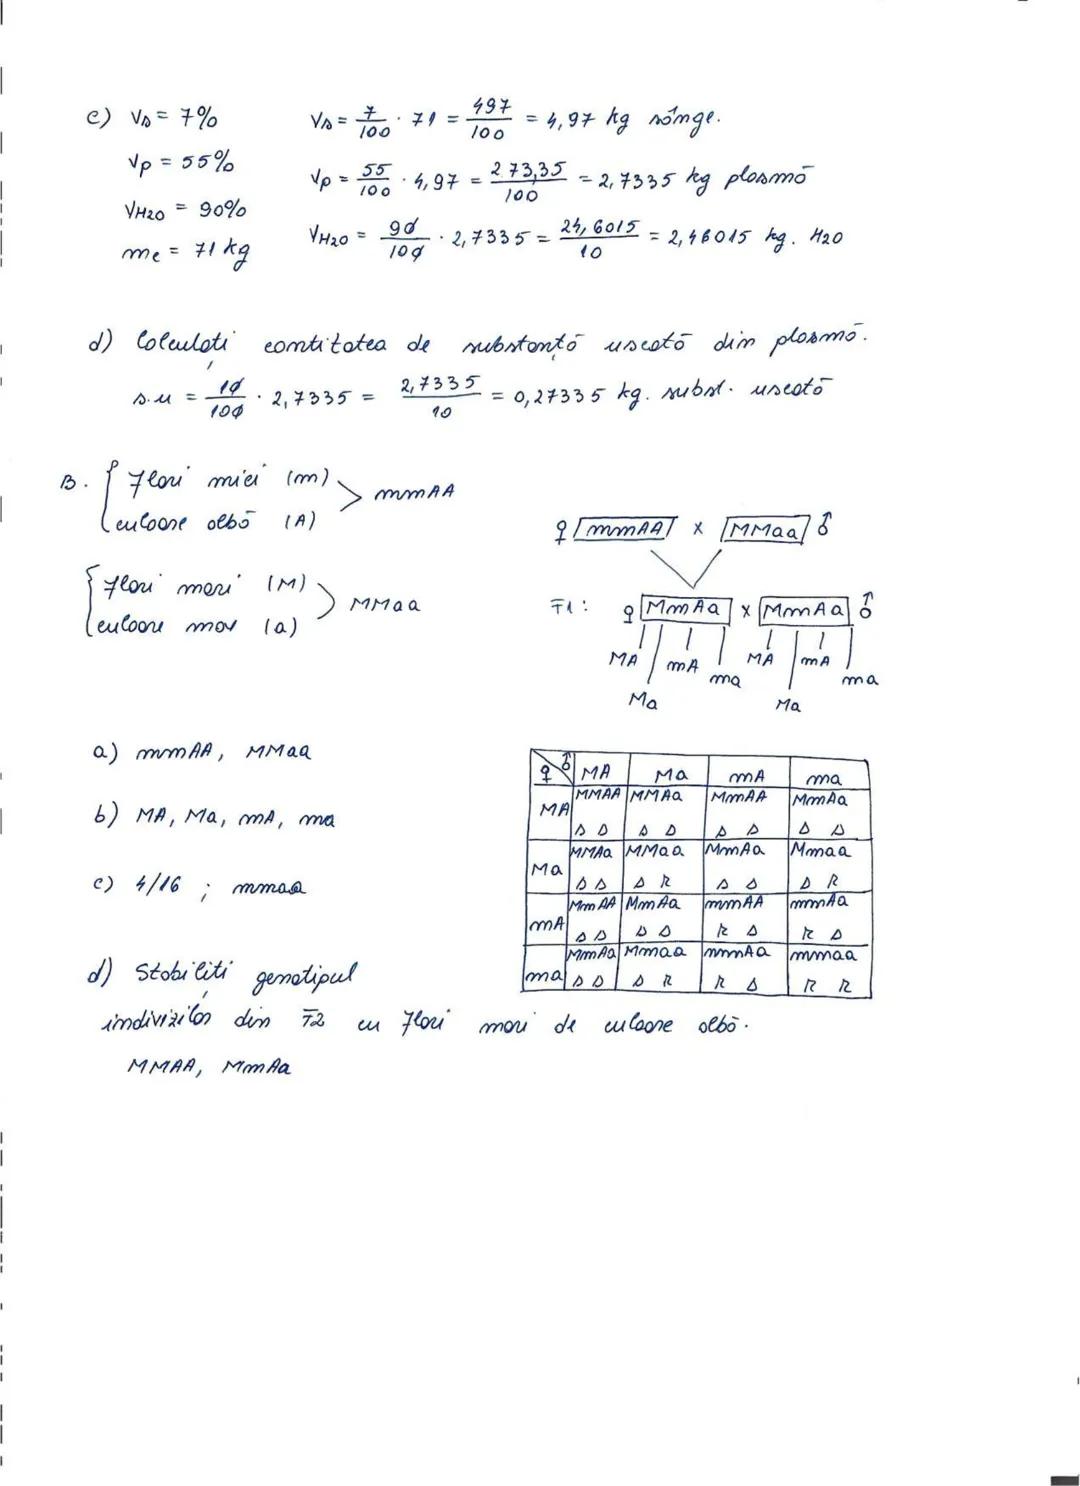 c) VΔ = 7%
VΔ = 7/100 · 71 = 497/100 = 4,97 kg sânge.
Vp = 55%
Vp = 55/100 · 4,97 = 273,35/100 = 2,7335 kg plasmă
VH2O = 90%
VH2O = 90/100 · 2,7335 = 24,6015/10 = 2,46015 kg. H2O
mc = 71 kg
d) Calculați cantitatea de substanță uscată din plasmă.
s.u = 10/100 · 2,7335 = 2,7335/10 = 0,27335 kg. subst. uscată
B. { Flori mici (m)
culoare albă (A) > mmAA
{ Flori mari (M)
culoare mov (a) > MMaa
♀ mmAA x MMaa ♂
F1: ♀ MmAa x MmAa ♂
MA Ma mA ma MA Ma mA ma
a) mmAA, MMaa
b) MA, Ma, mA, ma
c) 4/16 ; mmaa
♀ ♂ MA Ma mA ma
MA MMAA MMAa MmAA MmAa
Δ Δ Δ Δ Δ Δ Δ Δ
Ma MMAa MMaa MmAa Mmaa
Δ Δ Δ R Δ Δ Δ R
mA MmAA MmAa mmAA mmAa
Δ Δ Δ Δ R Δ R Δ
ma MmAa Mmaa mmAa mmaa
Δ Δ Δ R R Δ R R
d) Stabiliți genotipul
indivizilor din F2 cu flori mari de culoare albă.
MMAA, MmAa